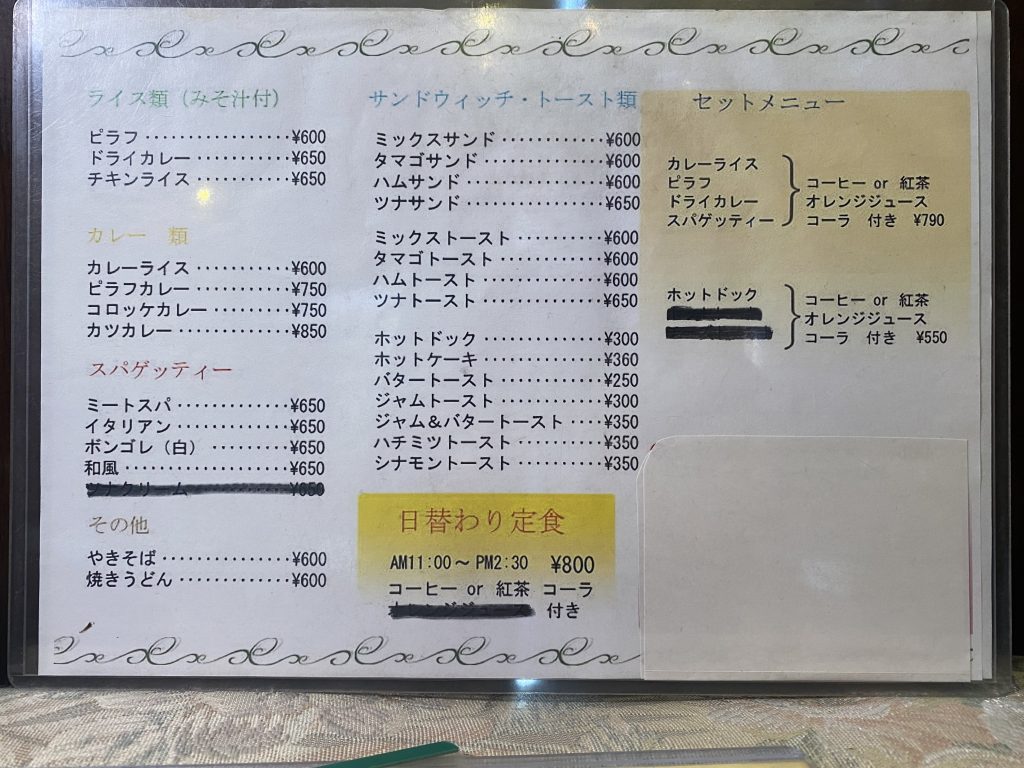 ライス類（みそ汁付）
ピラフ・・・・・・・・・・・・・・・・・¥600
ドライカレー・・・・・・・・・・・・¥650
チキンライス・・・・・・・・・・・・¥650
カレー　類
カレーライス・・・・・・・・・・・・¥600
ピラフカレー・・・・・・・・・・・・¥750
コロッケカレー・・・・・・・・・・¥750
カツカレー・・・・・・・・・・・・・・¥850
スパゲッティー
ミートスパ・・・・・・・・・・・・・・¥650
イタリアン・・・・・・・・・・・・・・¥650
ボンゴレ（白）・・・・・・・・・・¥650
和風・・・・・・・・・・・・・・・・・・・¥650
ツナクリーム・・・・・・・・・・・・¥650
その他
やきそば・・・・・・・・・・・・・・・・¥600
焼きうどん・・・・・・・・・・・・・・¥600
サンドウィッチ・トースト類
ミックスサンド・・・・・・・・・・¥600
タマゴサンド・・・・・・・・・・・・¥600
ハムサンド・・・・・・・・・・・・・・¥600
ツナサンド・・・・・・・・・・・・・・¥650
ミックストースト・・・・・・・・¥600
タマゴトースト・・・・・・・・・・¥600
ハムトースト・・・・・・・・・・・・¥600
ツナトースト・・・・・・・・・・・・¥650
ホットドック・・・・・・・・・・・・¥300
ホットケーキ・・・・・・・・・・・・¥360
バタートースト・・・・・・・・・・¥250
ジャムトースト・・・・・・・・・・¥300
ジャム＆バタートースト・・・・¥350
ハチミツトースト・・・・・・・・¥350
シナモントースト・・・・・・・・¥350
日替わり定食
AM11:00～PM2:30　¥800
コーヒー or 紅茶　コーラ
オレンジジュース　付き
セットメニュー
カレーライス
ピラフ　コーヒー or 紅茶
ドライカレー　オレンジジュース
スパゲッティー　コーラ　付き　¥790
ホットドック　コーヒー or 紅茶
オレンジジュース
コーラ　付き　¥550